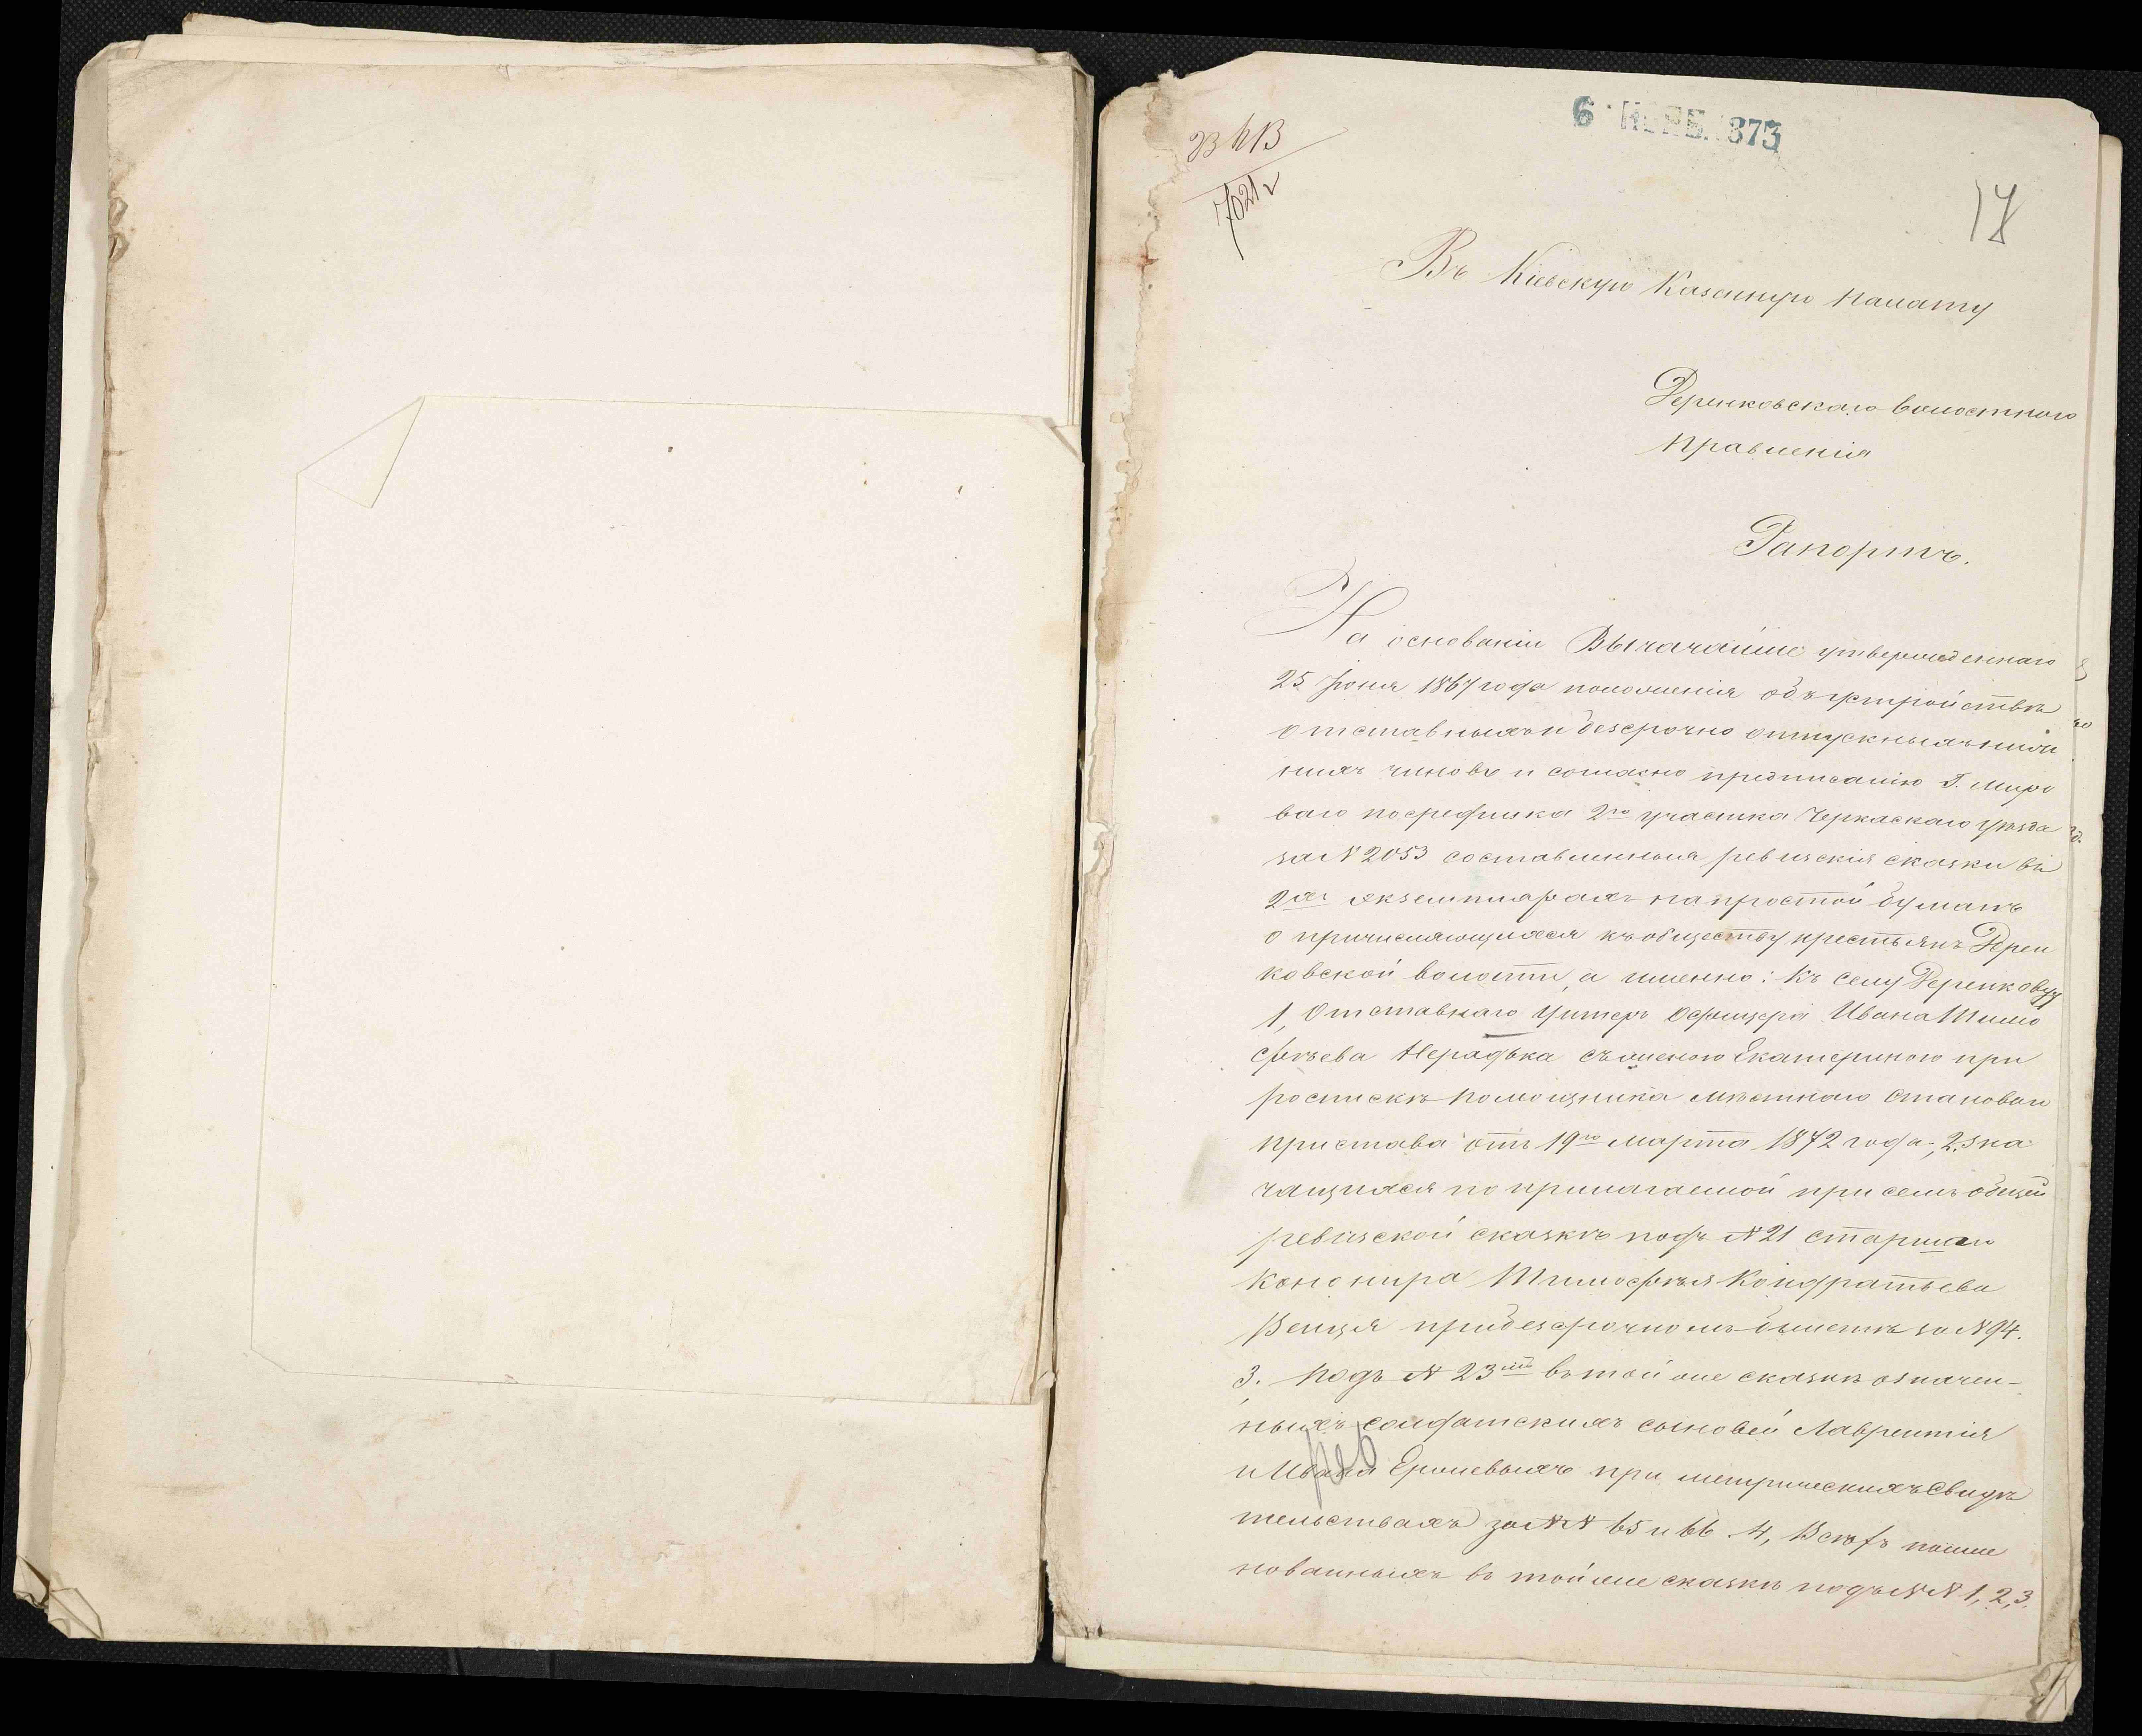 6 НОЯБ. 1873
17
7621
Въ Кіевскую Казенную палату
Деренковскаго волостного
Правленія
Рапортъ.
На основаніи Высочайше утвержденнаго
25 Іюня 1867 года положенія объ устройствѣ
отставныхъ и безсрочно отпускныхъ ниж
нихъ чиновъ и согласно предписанію Г. Миро
ваго посредника 2го участка Черкаскаго уѣзда
за № 2053 составленныя ревизскія сказки въ
2хъ экземплярахъ на простой бумагѣ
о причисляющихся къ обществу крестьянъ Дерен
ковской волости, а именно: Къ селу Деренковцу
1, Отставнаго Унтеръ Офицера Ивана Тимо
фѣева Нерадька съ женою Екатериною при
роспискѣ помощника мѣстнаго Становаго
пристава отъ 19го марта 1872 года; 2, зна
чащихся по прилагаемой при семъ общей
ревизской сказкѣ подъ № 21 старшаго
канонира Тимофѣя Кондратьева
при безсрочномъ билетѣ за № 94.
3. подъ № 23мъ въ той же сказкѣ означен-
ныхъ солдатскихъ сыновей Лаврентія
и Ивана при метрическихъ Свидѣ
тельствахъ за №№ 65 и 66. 4, Всѣхъ поиме
нованныхъ въ той же сказкѣ подъ №№ 1, 2, 3.